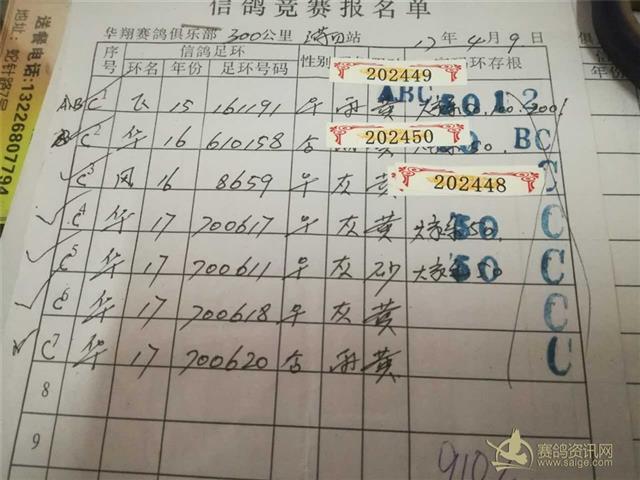 信鸽竞赛报名单
华翔赛鸽俱乐部 300公里 站 17年4月9日
序号 信鸽足环 性别 环存根
环名 年份 足环号码
202449
ABC 1 飞 15 161191 早 雨 黄 ABC 50 1 2
202450
C 2 华 16 610158 含 50. BC
C 3 凤 16 8659 早 灰 黄 202448 C
C 4 华 17 700617 早 灰 黄 50 C
C 5 华 17 700611 早 灰 砂 50 C
C 6 华 17 700618 早 灰 黄 C
C 7 华 17 700620 含 雨 黄 C
8
9
910
送餐电话:13226807794
地址: 蛇针路7号
赛鸽资讯网
www.saige.com